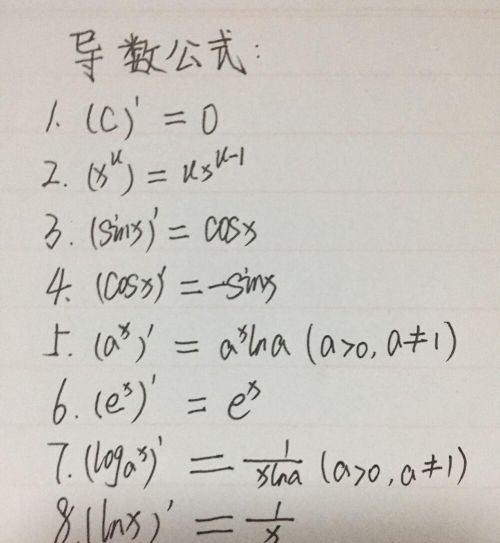 导数公式:
1. (C)' = 0
2. (x^u) = ux^{u-1}
3. (sinx)' = cosx
4. (cosx)' = -sinx
5. (a^x)' = a^x lna (a>0, a≠1)
6. (e^x)' = e^x
7. (log_a x)' = 1/(xlna) (a>0, a≠1)
8. (lnx)' = 1/x